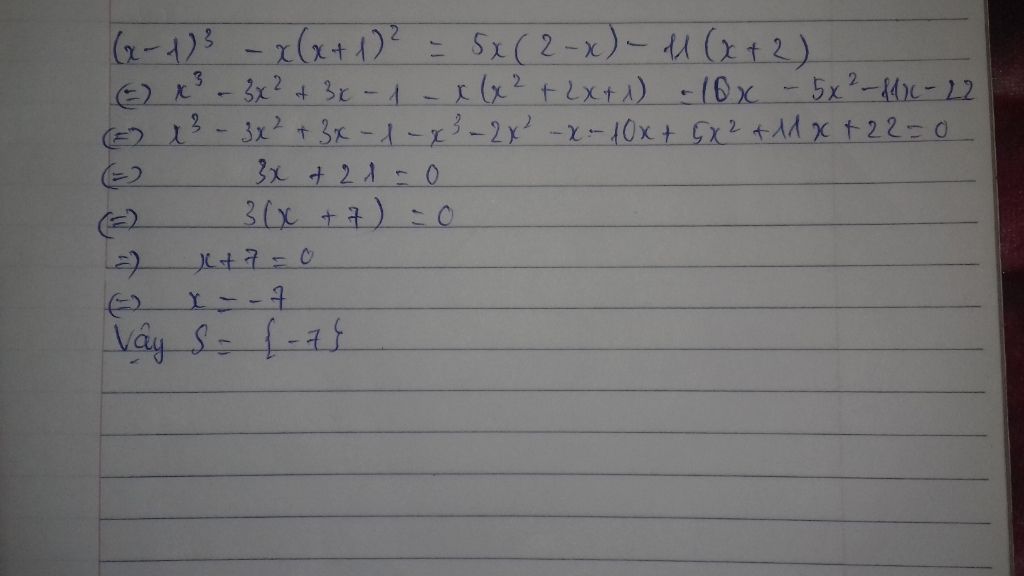 (x-1)³ - x(x+1)² = 5x(2-x) - 11(x+2)
(=) x³ - 3x² + 3x - 1 - x(x² + 2x+1) = 10x - 5x² - 11x - 22
(=) x³ - 3x² + 3x - 1 - x³ - 2x² - x - 10x + 5x² + 11x + 22 = 0
(=) 3x + 21 = 0
(=) 3(x + 7) = 0
=) x + 7 = 0
(=) x = -7
Vậy S = {-7}